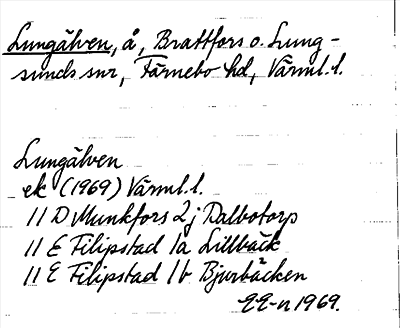 Lungälven, å, Brattfors o. Lung-
sunds snr, Färnebo hd, Värml. l.
Lungälven
ek (1969) Värml. l.
11 D Munkfors 2j Dalbotorp
11 E Filipstad 1a Lillbäck
11 E Filipstad 1b Bjurbäcken
EE-n 1969.